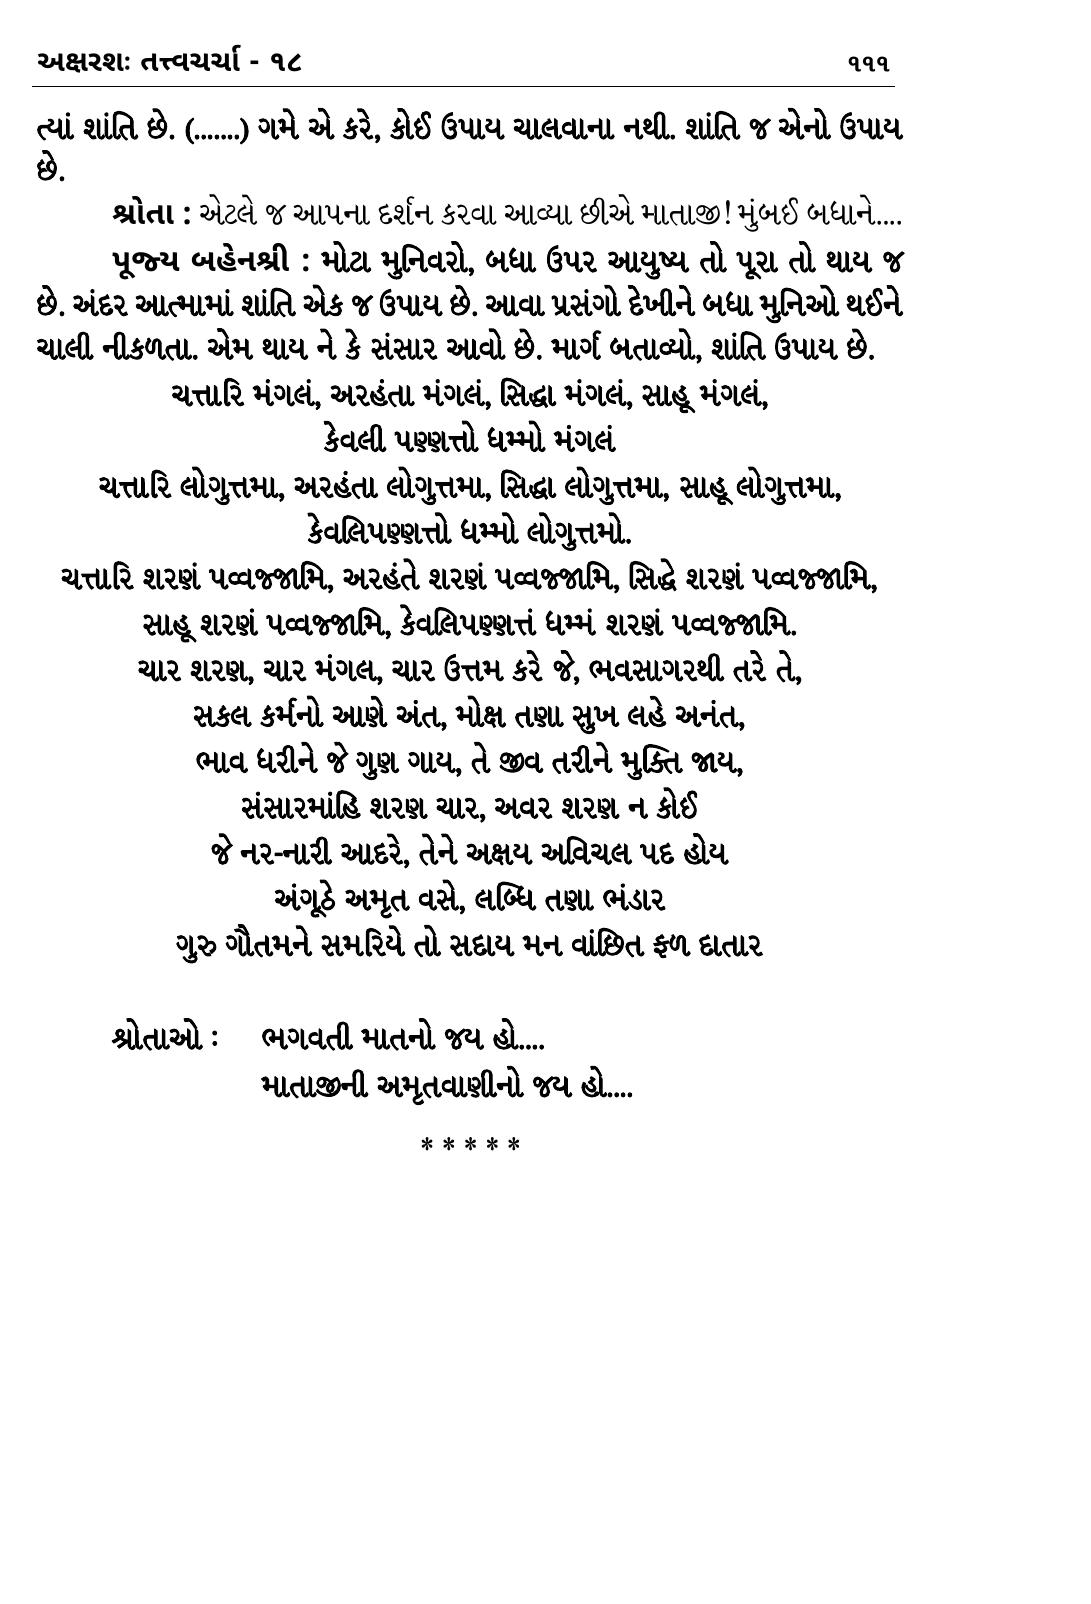 અક્ષરશઃ તત્ત્વચર્ચા - ૧૮ ૧૧૧
ત્યાં શાંતિ છે. (.......) ગમે એ કરે, કોઈ ઉપાય ચાલવાના નથી. શાંતિ જ એનો ઉપાય
છે.
શ્રોતા : એટલે જ આપના દર્શન કરવા આવ્યા છીએ માતાજી! મુંબઈ બધાને....
પૂજ્ય બહેનશ્રી : મોટા મુનિવરો, બધા ઉપર આયુષ્ય તો પૂરા તો થાય જ
છે. અંદર આત્મામાં શાંતિ એક જ ઉપાય છે. આવા પ્રસંગો દેખીને બધા મુનિઓ થઈને
ચાલી નીકળતા. એમ થાય ને કે સંસાર આવો છે. માર્ગ બતાવ્યો, શાંતિ ઉપાય છે.
ચત્તારિ મંગલં, અરહંતા મંગલં, સિદ્ધા મંગલં, સાહૂ મંગલં,
કેવલી પણ્ણત્તો ધમ્મો મંગલં
ચત્તારિ લોગુત્તમા, અરહંતા લોગુત્તમા, સિદ્ધા લોગુત્તમા, સાહૂ લોગુત્તમા,
કેવલિપણ્ણત્તો ધમ્મો લોગુત્તમો.
ચત્તારિ શરણં પવ્વજ્જામિ, અરહંતે શરણં પવ્વજ્જામિ, સિદ્ધે શરણં પવ્વજ્જામિ,
સાહૂ શરણં પવ્વજ્જામિ, કેવલિપણ્ણત્તં ધમ્મં શરણં પવ્વજ્જામિ.
ચાર શરણ, ચાર મંગલ, ચાર ઉત્તમ કરે જે, ભવસાગરથી તરે તે,
સકલ કર્મનો આણે અંત, મોક્ષ તણા સુખ લહે અનંત,
ભાવ ધરીને જે ગુણ ગાય, તે જીવ તરીને મુક્તિ જાય,
સંસારમાંહિ શરણ ચાર, અવર શરણ ન કોઈ
જે નર-નારી આદરે, તેને અક્ષય અવિચલ પદ હોય
અંગૂઠે અમૃત વસે, લબ્ધિ તણા ભંડાર
ગુરુ ગૌતમને સમરિયે તો સદાય મન વાંછિત ફળ દાતાર
શ્રોતાઓ : ભગવતી માતનો જય હો....
માતાજીની અમૃતવાણીનો જય હો....
* * * * *